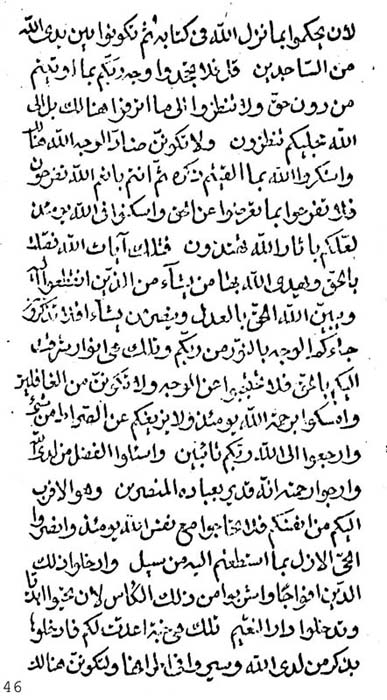 لان يحكموا بما نزل الله فى كتابه ثم تكونوا بين يدى الله
من الساجدين قل فلا تتخذوا وجه ربكم بما اوتيتم
من دون حق ولا تنظروا الى ما انزفوا هنالك بل الى
الله تجليكم تنظرون ولا تكونن صادا لوجه الله هنالك
واستكروا الله بما القيتم ذكره ثم انتم باثم الله تفرحون
فلا تفرحوا بما تعرضوا عن الحق واسكنوا فى الله يومئذ
لعلكم باثار الله تهتدون فتلك آيات الله نفقت
بالحق ويهدى الله بها من يشآء من الذين
ويبين الله الحق بالعدل وينصر من يشآء افلا تذكرون
جاءكم الوجه بالنور من ربكم وتلك هى انوار شرقت
اليكم بالحق فلا تحتجبوا عن الوجه ولا تكونن من الغافلين
وامسكوا برحمة الله يومئذ ولا يزيغكم عن الصراط من شئ
وارجعوا الى الله ربكم تائبين واسئلوا الفضل من لدى الله
وارجوا رحمته انه قدير بعباده المنصرين وهو الاقرب
اليكم من انفسكم فلا تحاجوا مع نفس الله يومئذ وانصروا
الحق الازل بما استطعتم اليه من سبيل وادخلوا ذلك
الدين افواجا واشربوا من ذلك الكأس لان
وتدخلوا دار النعيم تلك هى اعدت لكم فادخلوا
بذكر من لدى الله وسيروا فى ارا ضها ولتكونن هنالك
46